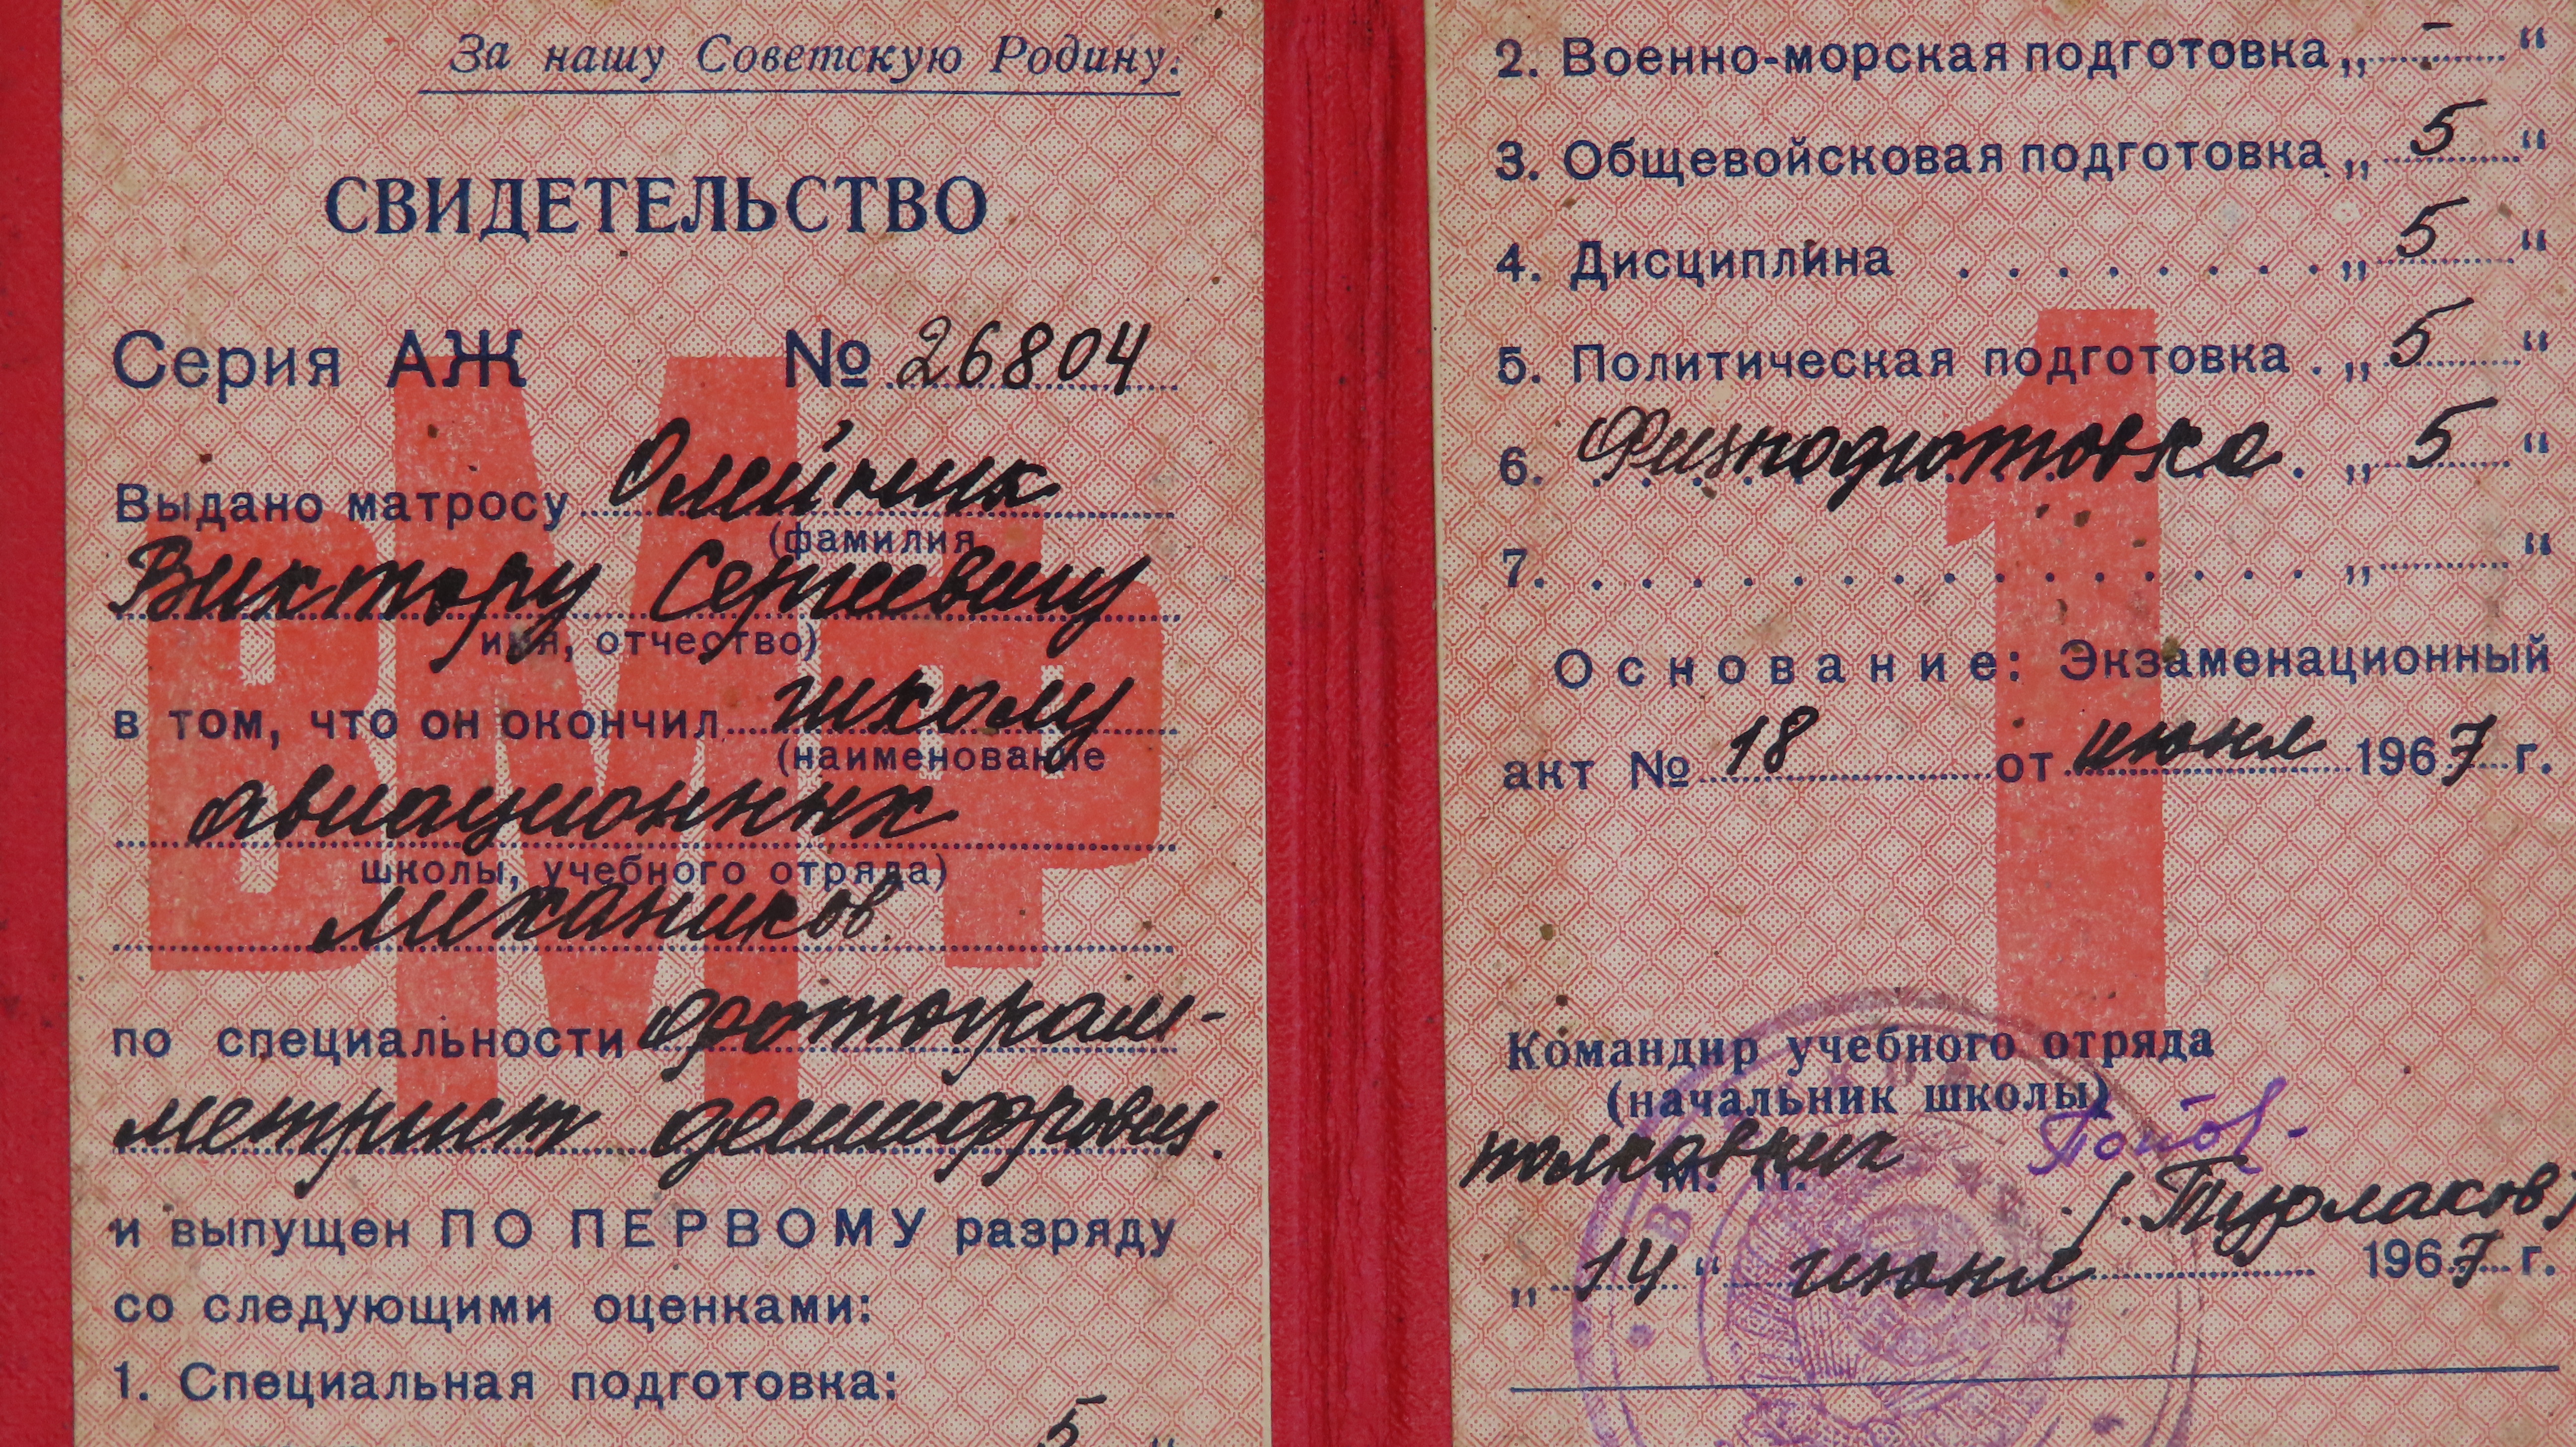 За нашу Советскую Родину.
СВИДЕТЕЛЬСТВО
Серия АЖ № 26804
Выдано матросу Олейник
(фамилия
Виктору Сергеевичу
имя, отчество)
в том, что он окончил школу
(наименование
авиационных
школы, учебного отряда)
механиков
по специальности фотограм-
метрист дешифровщ.
и выпущен ПО ПЕРВОМУ разряду
со следующими оценками:
1. Специальная подготовка:
5 "
ВМФ
2. Военно-морская подготовка „ - "
3. Общевойсковая подготовка „ 5 "
4. Дисциплина . . . . . . . . „ 5 "
5. Политическая подготовка . „ 5 "
6. Физподготовка . „ 5 "
7. . . . . . . . . . . . . . . . „ "
Основание: Экзаменационный
акт № 18 от июня 1967 г.
1
Командир учебного отряда
(начальник школы)
полковник
М. П.
/.Турлаков/
„ 14 " июня 1967 г.